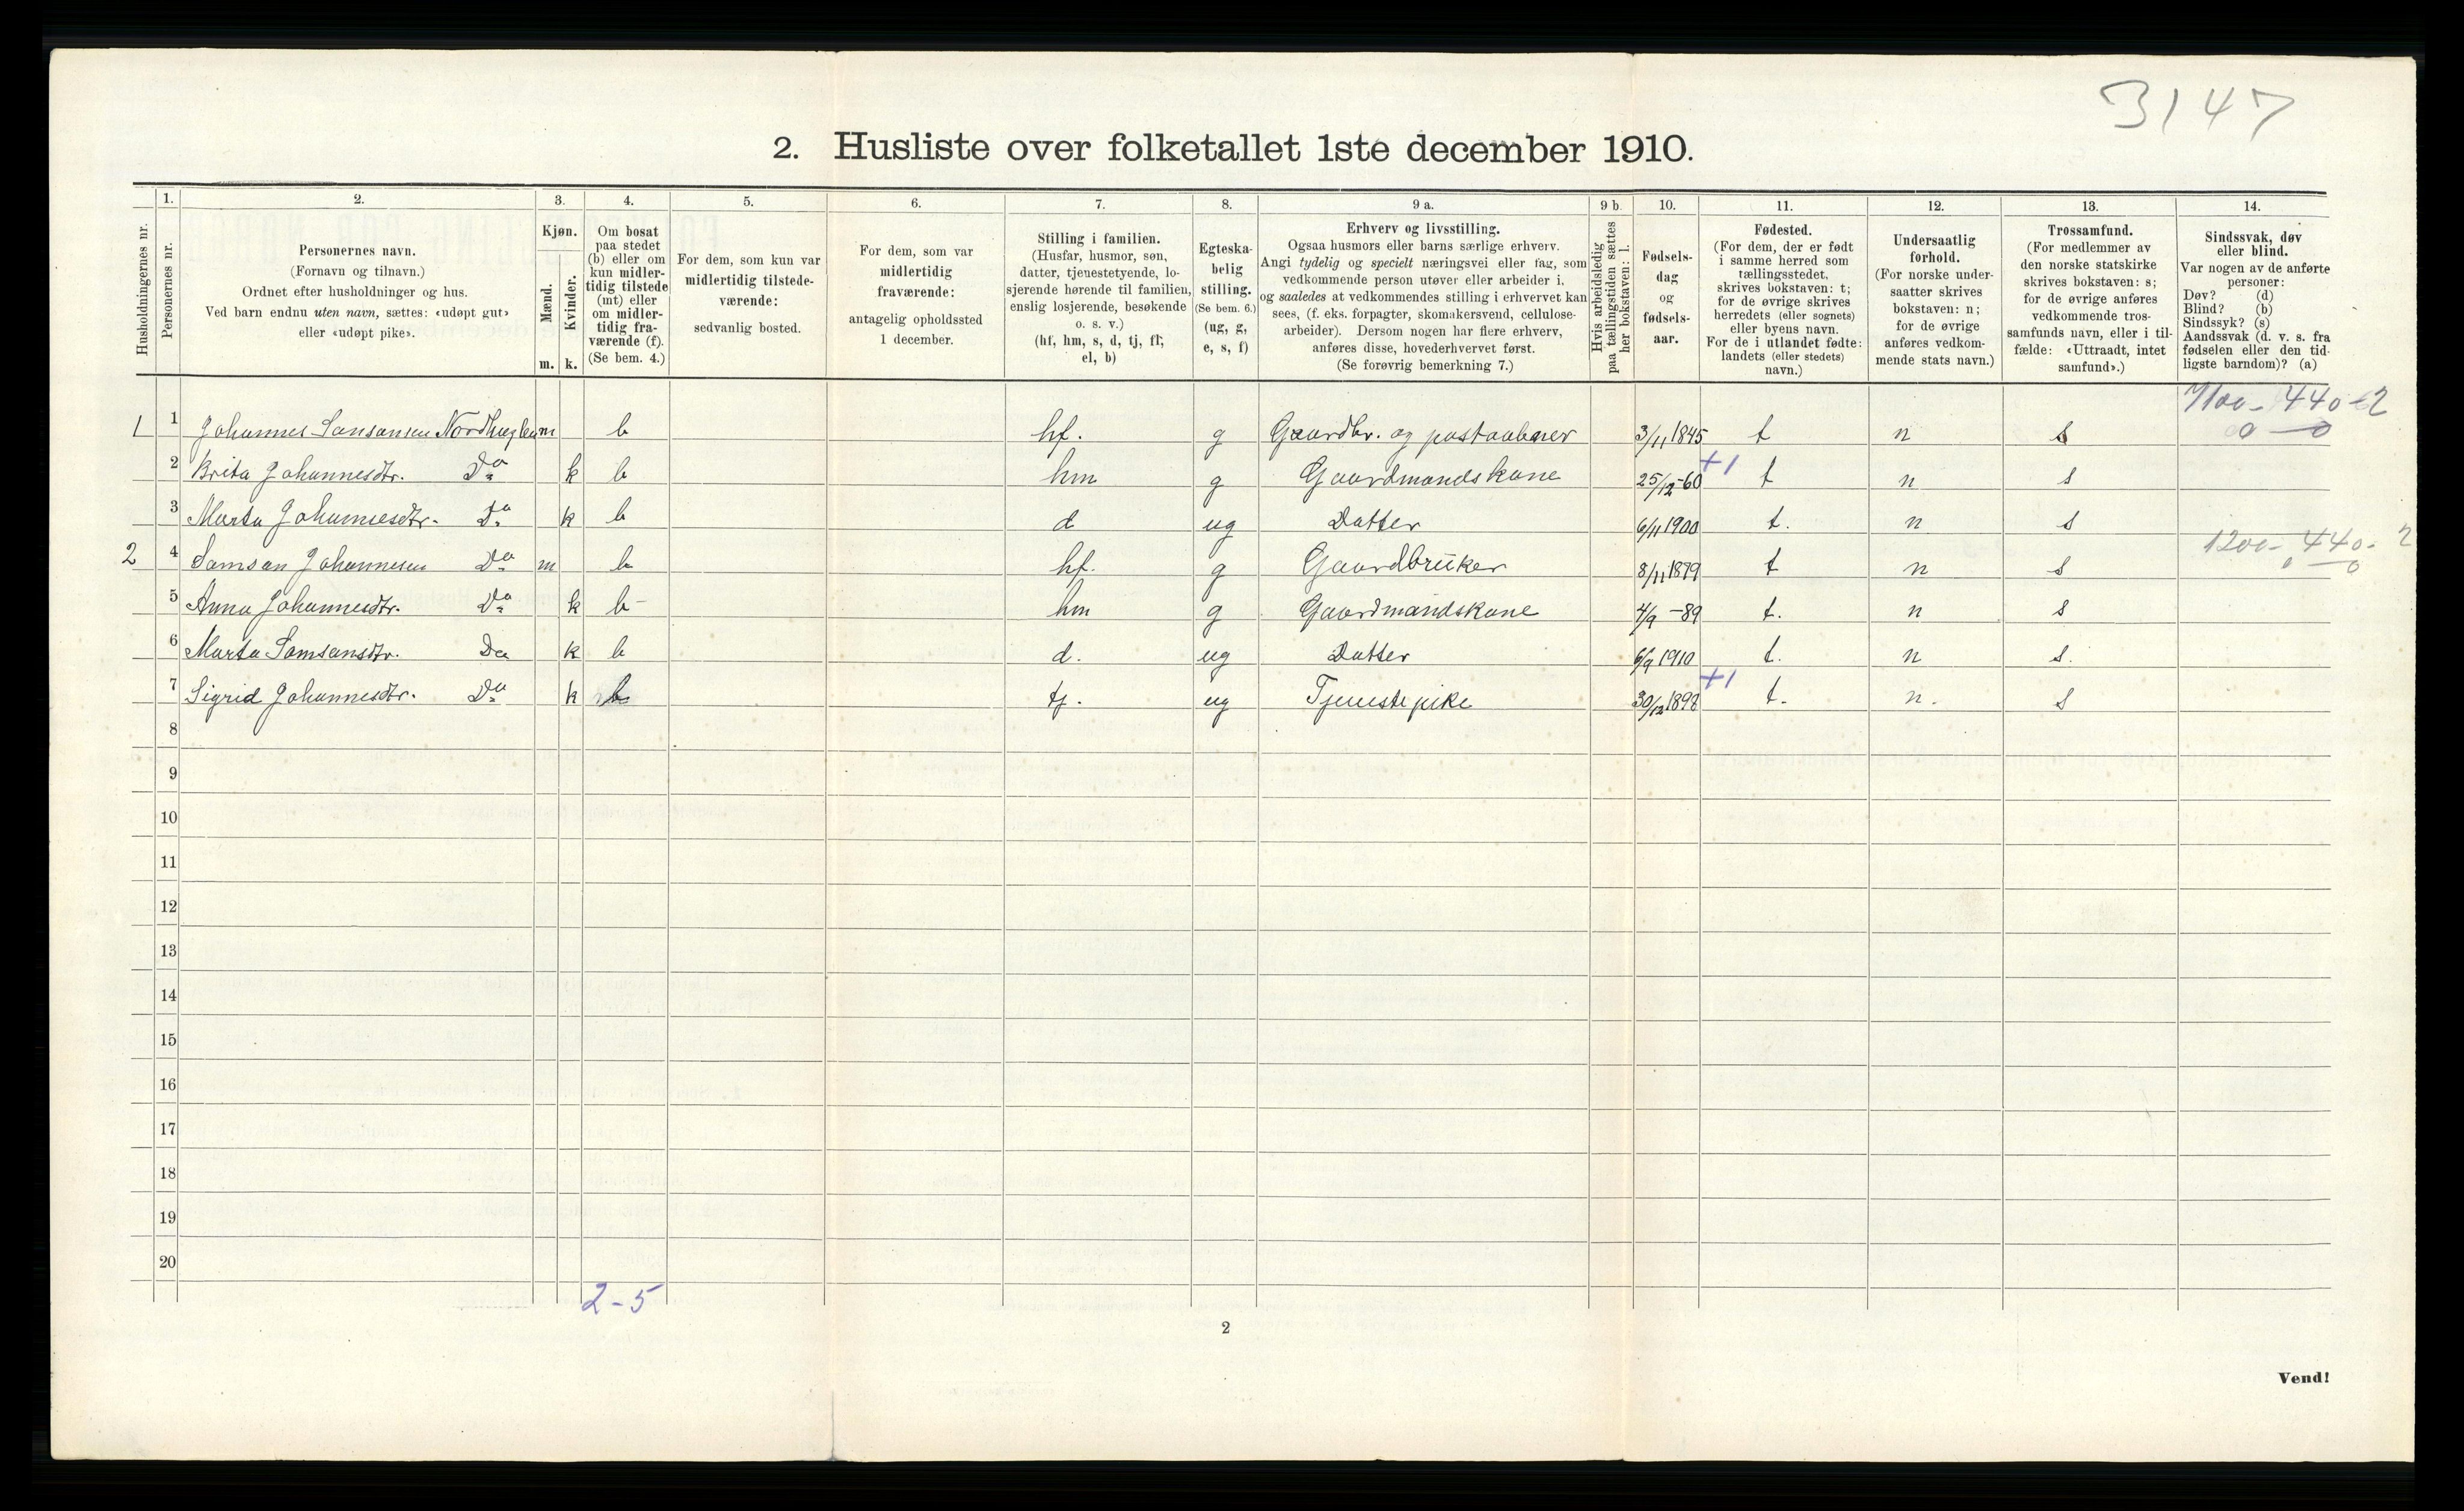 3147
2. Husliste over folketallet 1ste december 1910.
Husholdningernes nr.
1.
Personernes nr.
2.
Personernes navn.
(Fornavn og tilnavn.)
Ordnet efter husholdninger og hus.
Ved barn endnu uten navn, sættes: «udøpt gut»
eller «udøpt pike».
3.
Kjøn.
Mænd.
Kvinder.
m. k.
4.
Om bosat
paa stedet
(b) eller om
kun midler-
tidig tilstede
(mt) eller
om midler-
tidig fra-
værende (f).
(Se bem. 4.)
5.
For dem, som kun var
midlertidig tilstede-
værende:
sedvanlig bosted.
6.
For dem, som var
midlertidig
fraværende:
antagelig opholdssted
1 december.
7.
Stilling i familien.
(Husfar, husmor, søn,
datter, tjenestetyende, lo-
sjerende hørende til familien,
enslig losjerende, besøkende
o. s. v.)
(hf, hm, s, d, tj, fl,
el, b)
8.
Egteska-
belig
stilling.
(Se bem. 6.)
(ug, g,
e, s, f)
9 a.
Erhverv og livsstilling.
Ogsaa husmors eller barns særlige erhverv.
Angi tydelig og specielt næringsvei eller fag, som
vedkommende person utøver eller arbeider i,
og saaledes at vedkommendes stilling i erhvervet kan
sees, (f. eks. forpagter, skomakersvend, cellulose-
arbeider). Dersom nogen har flere erhverv,
anføres disse, hovederhvervet først.
(Se forøvrig bemerkning 7.)
9 b.
Hvis arbeidsledig
paa tællingstiden sættes
her bokstaven: l.
10.
Fødsels-
dag
og
fødsels-
aar.
11.
Fødested.
(For dem, der er født
i samme herred som
tællingsstedet,
skrives bokstaven: t;
for de øvrige skrives
herredets (eller sognets)
eller byens navn.
For de i utlandet fødte:
landets (eller stedets)
navn.)
12.
Undersaatlig
forhold.
(For norske under-
saatter skrives
bokstaven: n;
for de øvrige
anføres vedkom-
mende stats navn.)
13.
Trossamfund.
(For medlemmer av
den norske statskirke
skrives bokstaven: s;
for de øvrige anføres
vedkommende tros-
samfunds navn, eller i til-
fælde: «Uttraadt, intet
samfund».)
14.
Sindssvak, døv
eller blind.
Var nogen av de anførte
personer:
Døv? (d)
Blind? (b)
Sindssyk? (s)
Aandssvak (d. v. s. fra
fødselen eller den tid-
ligste barndom)? (a)
440-2
0 - 0
1 1 Johannes Samsonsen Nordhuglen m b hf. g Gaardbr. og postaabner 3/11 1845 t n s
2 Brita Johannesdtr. Do k b hm g Gaardmandskone 25/12-60 +1 t n s
3 Marta Johannesdtr. Do k b d ug Datter 6/11 1900 t. n s
1200-440-2
0 - 0
2 4 Samson Johannesen Do m b hf. g Gaardbruker 8/11 1879 t n s
5 Anna Johannesdtr. Do k b- hm g Gaardmandskone 4/9 -89 t. n s
6 Marta Samsonsdtr. Do k b d. ug Datter 6/9 1910 t. n s.
7 Sigrid Johannesdtr. Do k b tj. ug Tjenestepike 30/12 1898 +1 t. n. s
8
9
10
11
12
13
14
15
16
17
18
19
20
2-5
2
Vend!